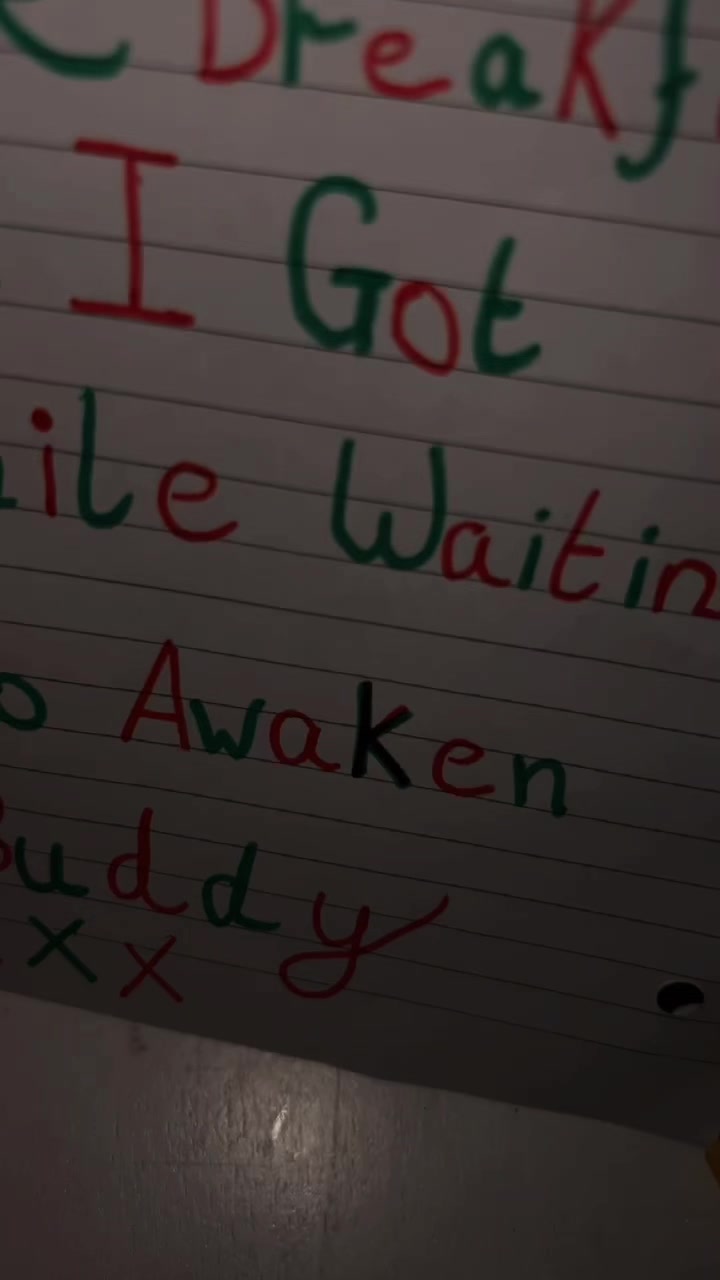 Breakf
I Got
ile Waitin
o Awaken
Buddy
x x